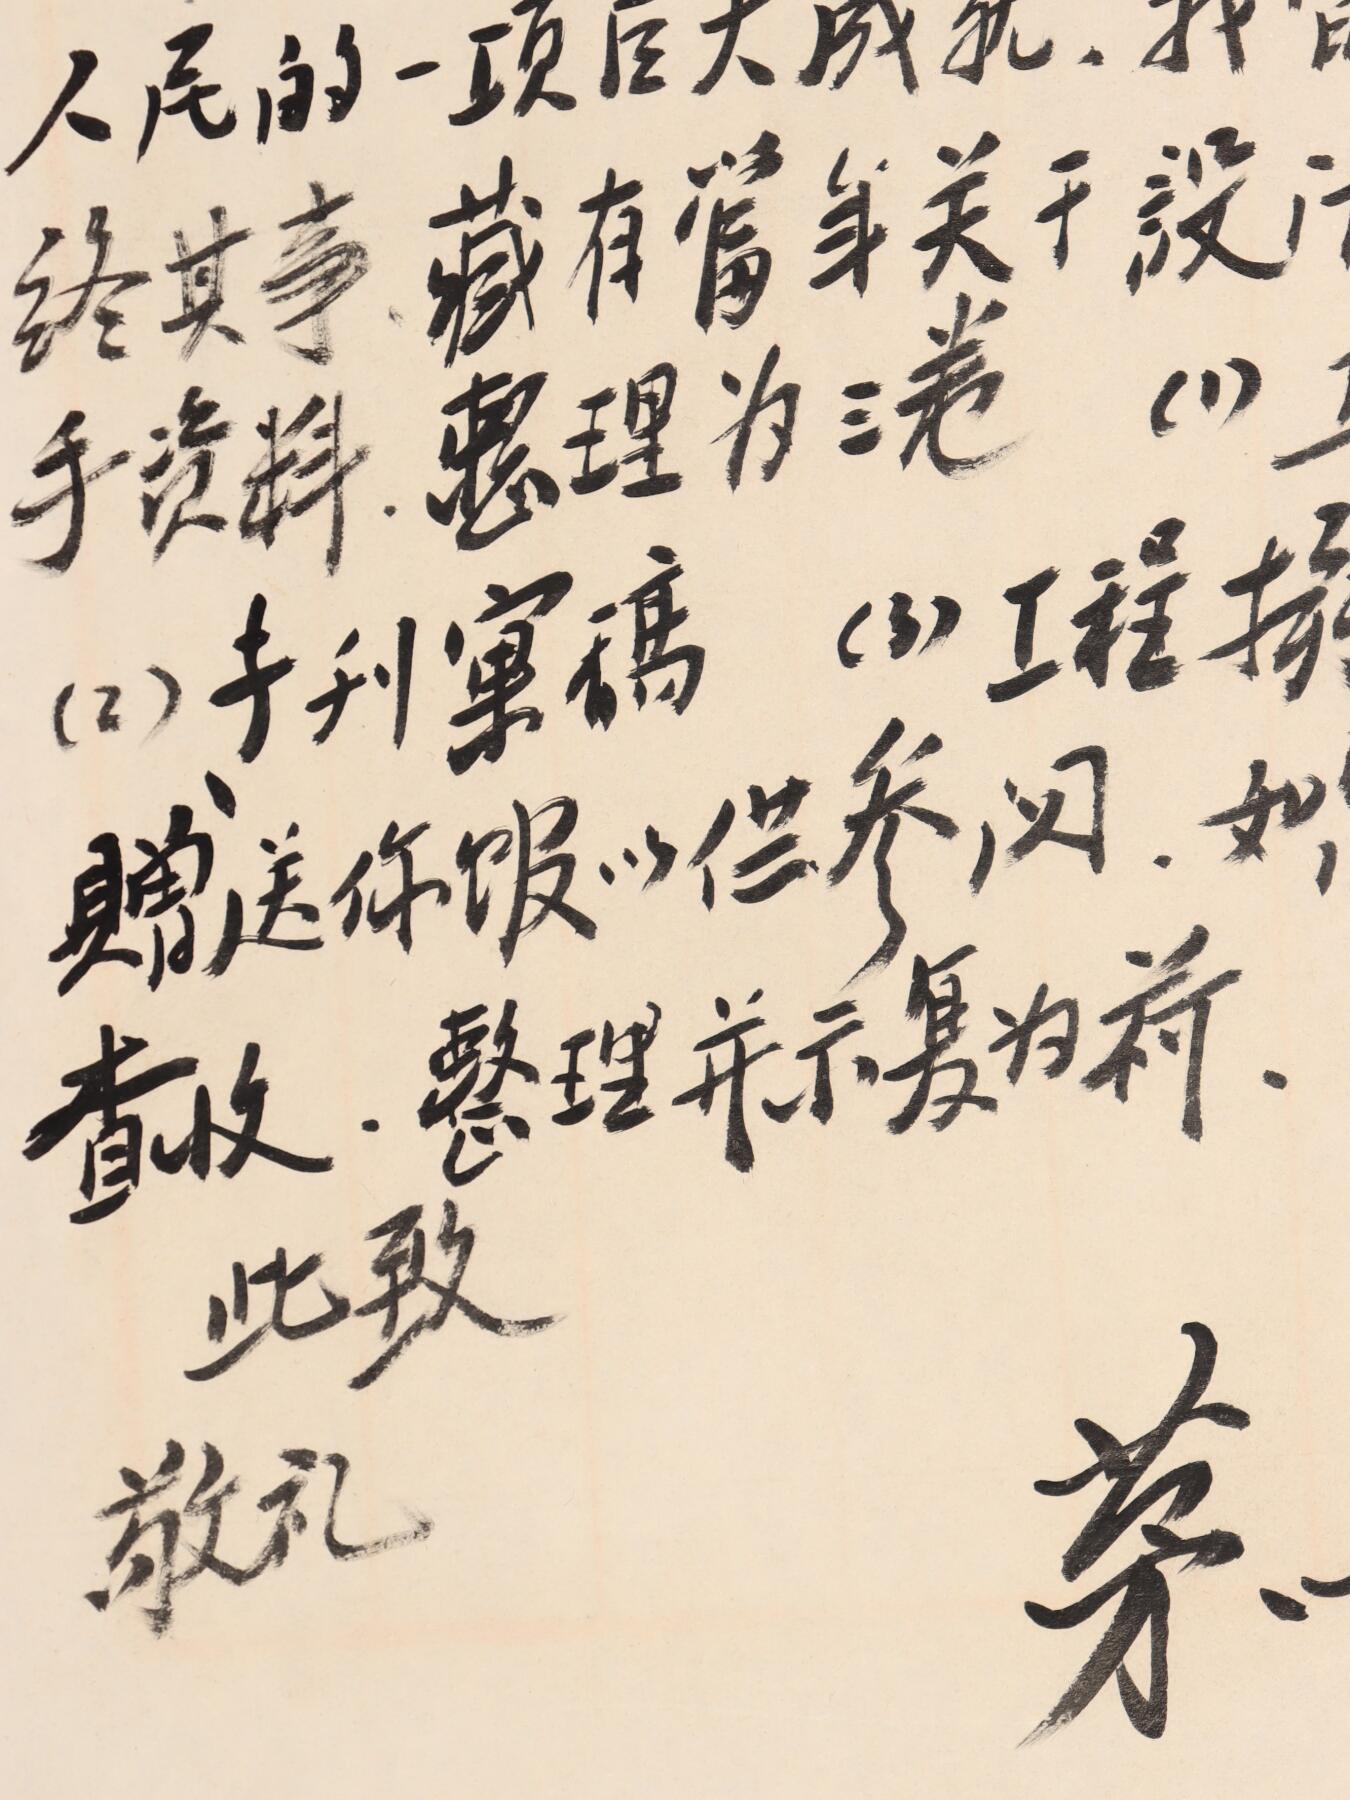 人民的一项巨大成就．我
终其事．藏有当年关于設计
手资料．整理为三卷 (1) 工
(2) 未刊写稿 (3) 工程
赠送你馆以供参阅．如
查收．整理并示复为荷．
此致
敬礼
茅